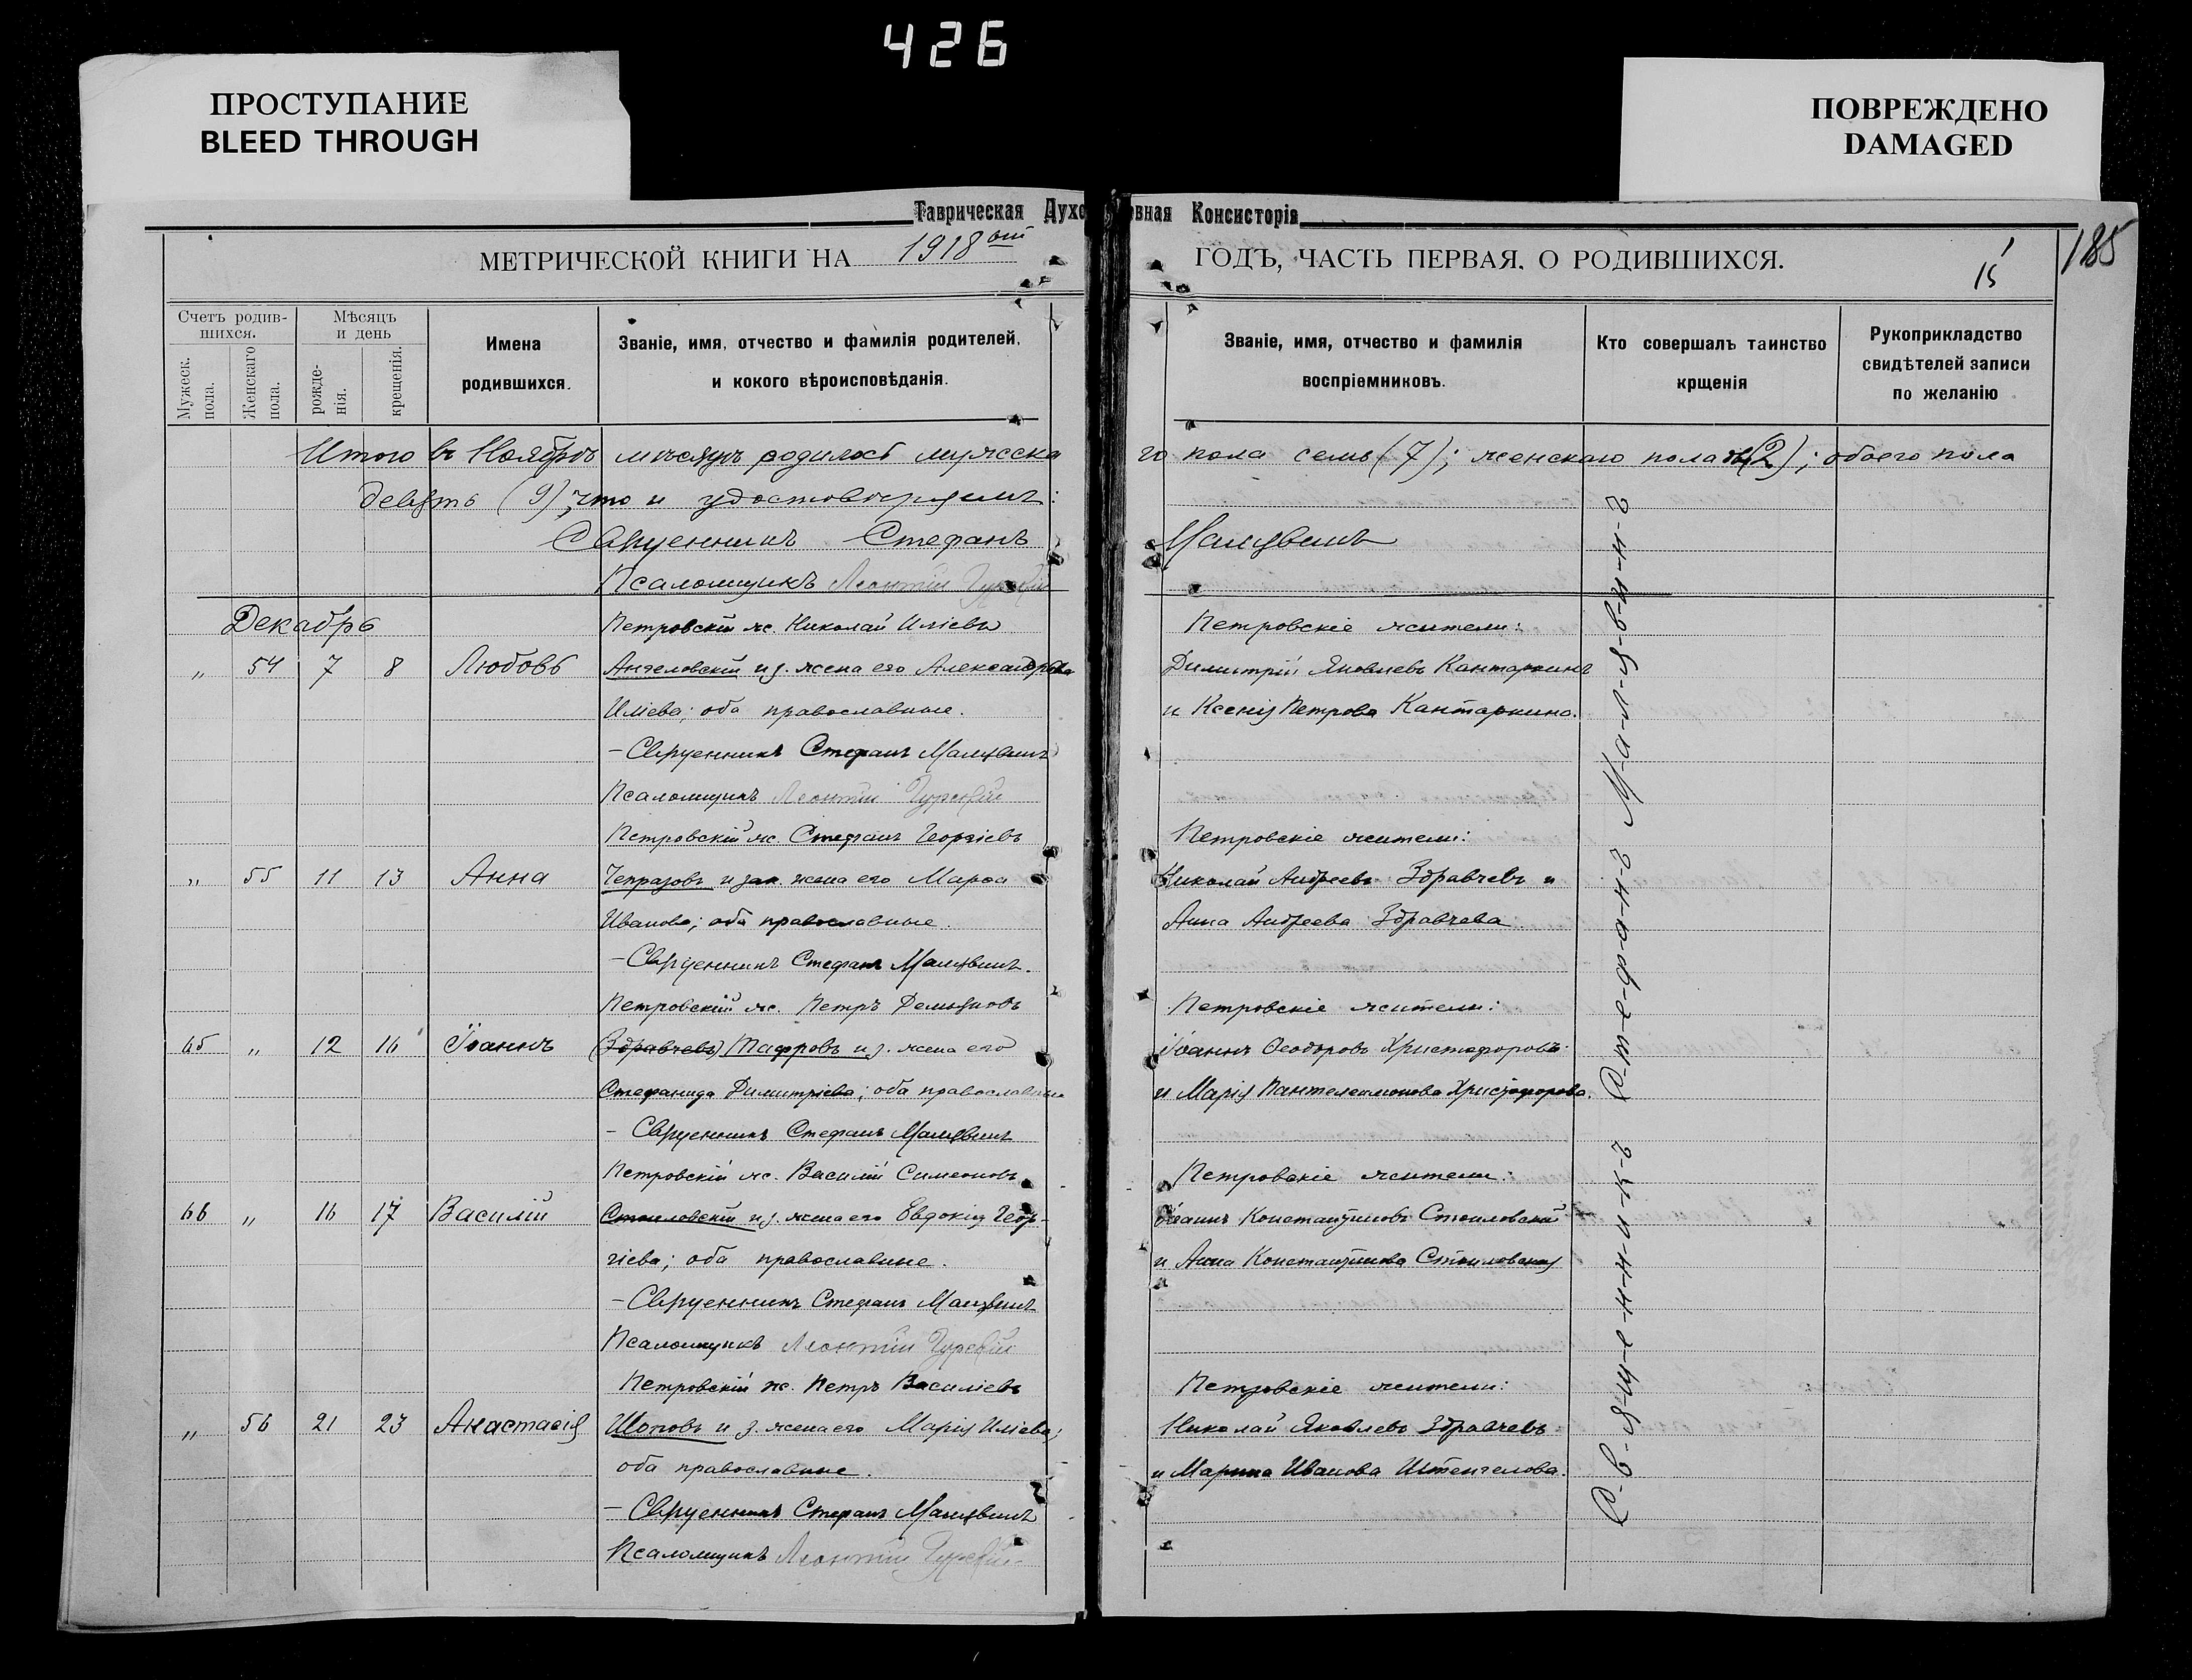 426
ПРОСТУПАНИЕ
BLEED THROUGH
ПОВРЕЖДЕНО
DAMAGED
Таврическая Духовная Консисторія
МЕТРИЧЕСКОЙ КНИГИ НА 1918 ГОДЪ, ЧАСТЬ ПЕРВАЯ, О РОДИВШИХСЯ.
15
185
Счетъ родив-
шихся.
Мужеск.
пола.
Женскаго
пола.
Мѣсяцъ
и день
рожде-
нія.
крещенія.
Имена
родившихся.
Званіе, имя, отчество и фамилія родителей,
и кокого вѣроисповѣданія.
Званіе, имя, отчество и фамилія
воспріемниковъ.
Кто совершалъ таинство
крщенія
Рукоприкладство
свидѣтелей записи
по желанію
Итого въ Ноябрѣ мѣсяцѣ родилось мужска го пола семь (7); женскаго пола два (2); обоего пола
девять (9), что и удостовѣряемъ:
Священникъ Стефанъ Малявинъ
Псаломщикъ Леонтій
Декабрь
Петровскій ж. Николай Иліевъ
Петровскіе жители:
" 54 7 8 Любовь Ангеловскій и з. жена его Александра
Димитрій Яковлевъ Кантаржинъ
Иліева; оба православные.
и Ксенія Петрова Кантаржина.
– Священникъ Стефанъ Малявинъ
Псаломщикъ Леонтій
Петровскій ж. Стефанъ Георгіевъ
Петровскіе жители:
" 55 11 13 Анна Чепразовъ и зак. жена его Марѳа
Николай Андреевъ Здравчевъ и
Иванова; оба православные.
Анна Андреева Здравчева.
– Священникъ Стефанъ Малявинъ.
Петровскій ж. Петръ Демьяновъ
Петровскіе жители:
65 " 12 16 Іоаннъ (Здравчевъ) и з. жена его
Іоаннъ Ѳеодоровъ Христофоровъ
Стефанида Димитріева; оба православные
и Марія Пантелеимонова Христофорова.
– Священникъ Стефанъ Малявинъ
Петровскій ж. Василій Симеоновъ
Петровскіе жители:
66 " 16 17 Василій Стоиловскій и з. жена его Евдокія Геор-
Іоаннъ Константиновъ Стоиловскій
гіева; оба православные.
и Анна Константинова Стоиловская
– Священникъ Стефанъ Малявинъ
Псаломщикъ Леонтій
Петровскій ж. Петръ Василіевъ
Петровскіе жители:
" 56 21 23 Анастасія Шоповъ и з. жена его Марія Иліева;
Николай Яковлевъ Здравчевъ
оба православные.
и Марина Иванова Штенгелова.
– Священникъ Стефанъ Малявинъ
Псаломщикъ Леонтій
С-в-я-щ-е-н-н-и-к-ъ С-т-е-ф-а-н-ъ М-а-л-я-в-и-н-ъ